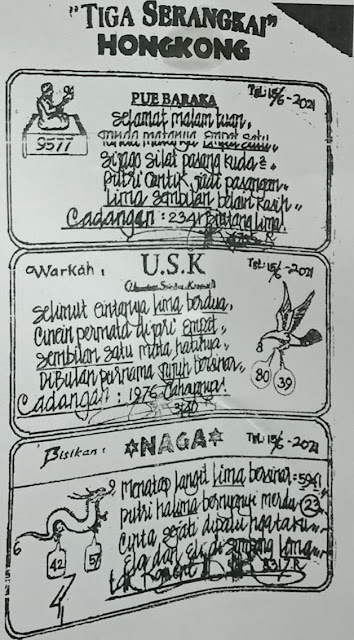 "TIGA SERANGKAI"
HONGKONG
PUE BARAKA
Tgl: 15/6-2021
9577
Selamat malam tuan,
tanda matanya empat satu
Sijago silat pasang kuda²
Putri Cantik jadi pasangan
lima sembilan belan kasih
Cadangan : 2341 Bintang lima!
Warkah :
U.S.K
Tgl: 15/6-2021
Selimut cintanya lima berdua,
Cincin permata di pri empat
Sembilan satu mana hatinya
DiBulan purnama tujuh bersinar,
Cadangan : 1976 Cahayanya!
3140
8
80
39
Bisikan :
NAGA
Tgl: 15/6-2021
Menatap langit lima bersinar = 5941
Putri halima bernyanyi merdu
23
Cinta sejati
Ela dan Eli di
8317.R
6
42
57